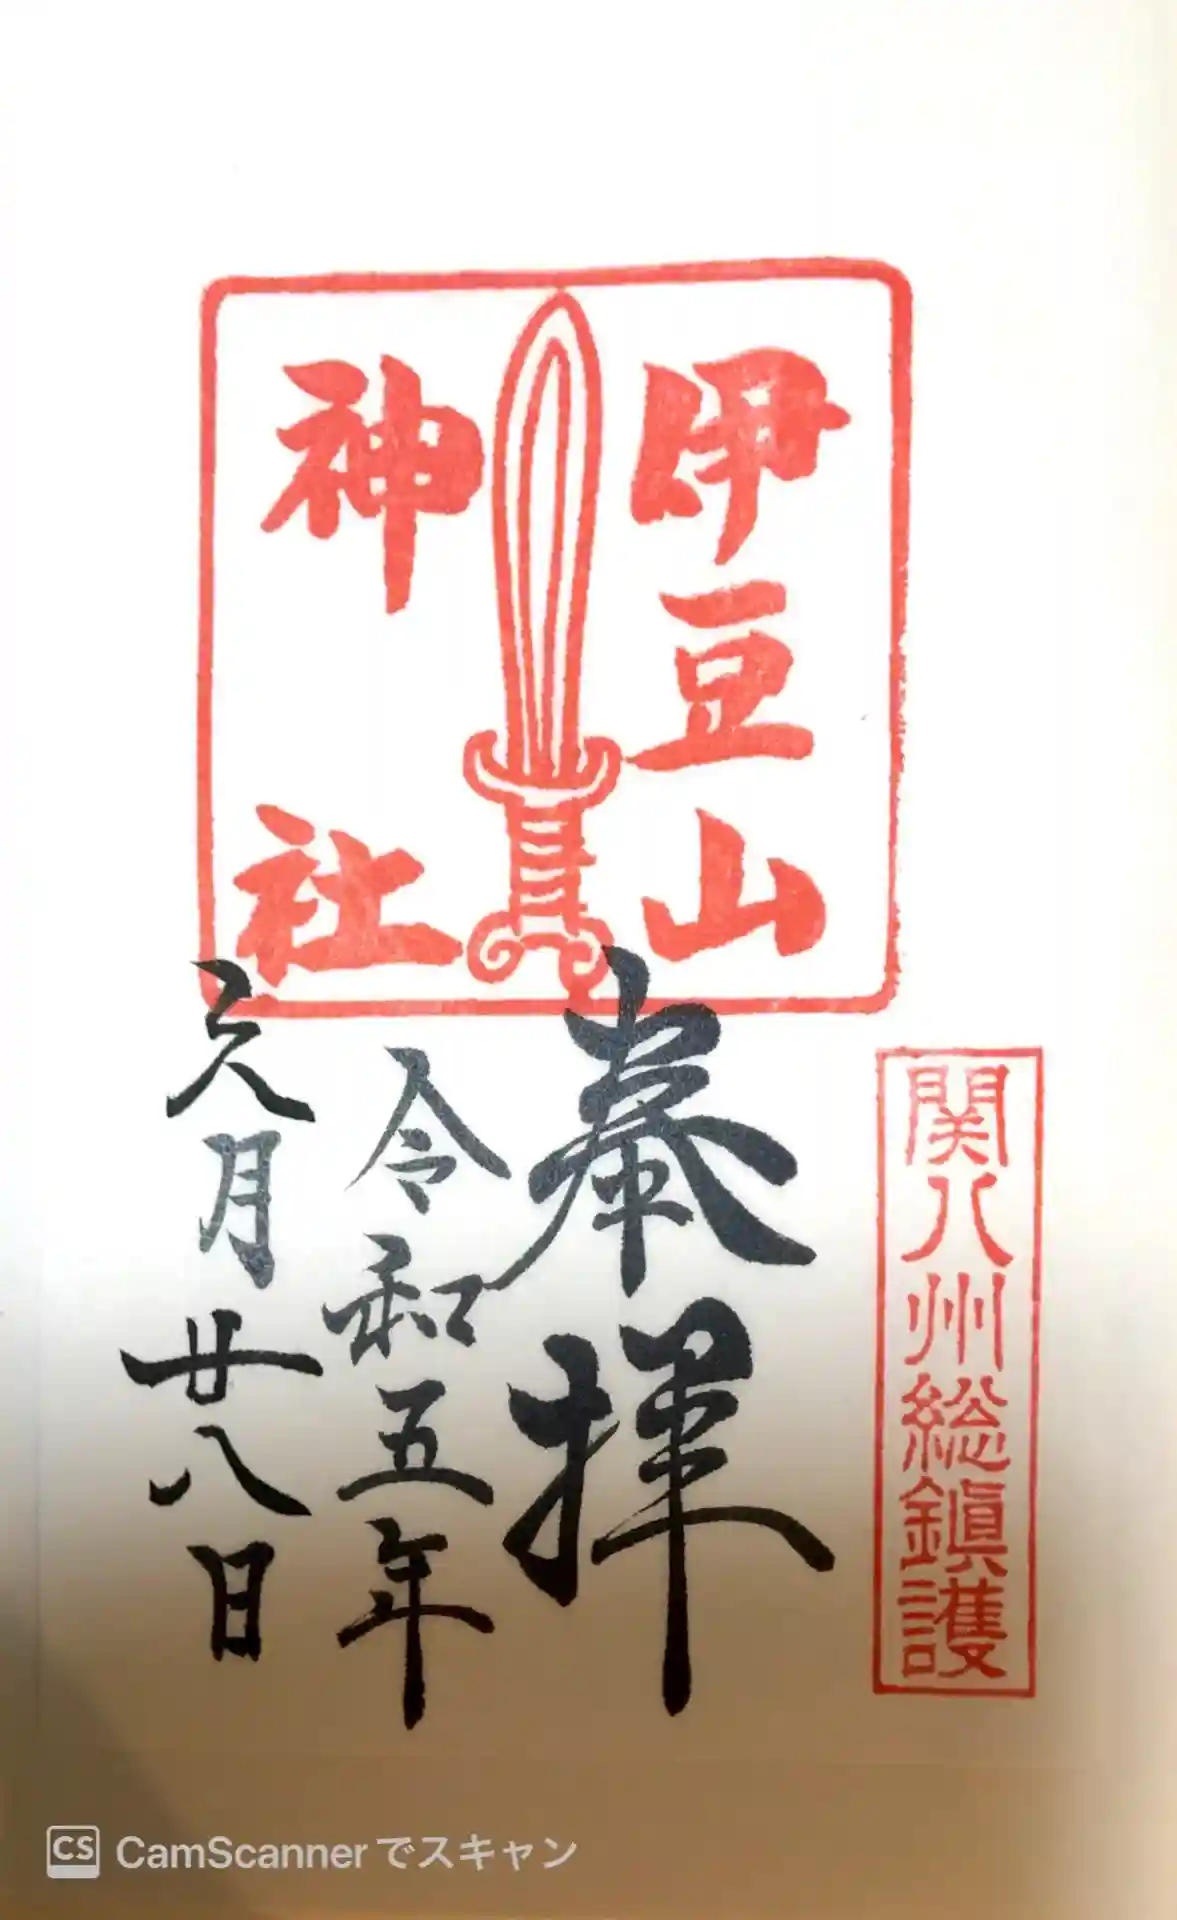 関八州総鎮護
伊豆山
神社
奉拝
令和五年
六月廿八日
CS CamScannerでスキャン